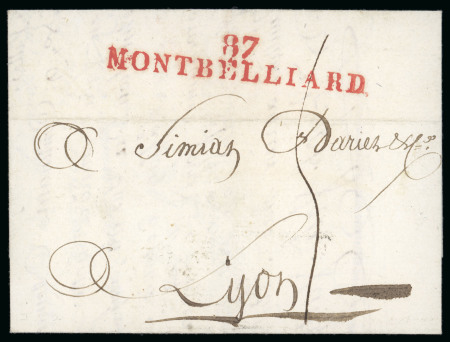 87
MONTBELLIARD
A Simian Dariez & Cie.
A Lyon